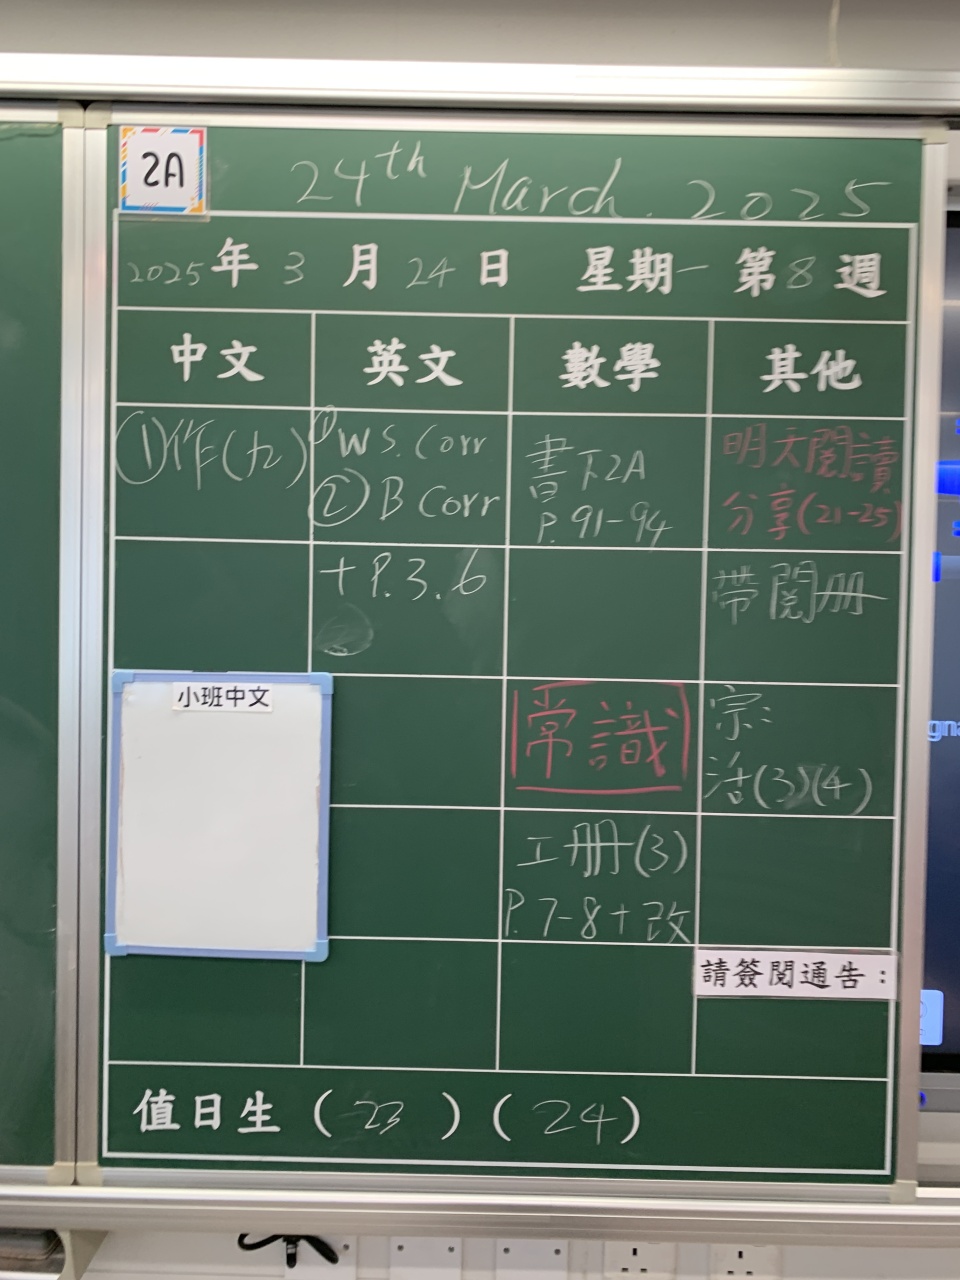 2A
24th March. 2025
2025年 3 月 24 日 星期一 第 8 週
中文 英文 數學 其他
①作(九)
①WS. Corr
②B Corr
+ P.3.6
書下2A
P. 91-94
明天閱讀
分享(21-25)
帶閱冊
小班中文
常識
工冊(3)
P. 7-8 + 改
宗:
活(3)(4)
請簽閱通告:
值日生 (23)(24)